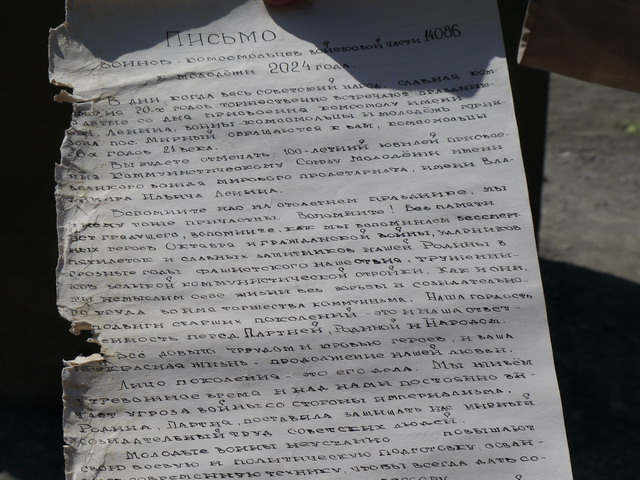 Письмо
воинов-комсомольцев войсковой части 14086
к молодёжи 2024 года.
В дни, когда весь советский народ, славная ком-
20-х годов торжественно встречают
со дня присвоения комсомолу имени
Ленина, воины-комсомольцы и молодёжь
пос. Мирный обращаются к вам, комсомольцы
20-х годов 21 века.
Вы будете отмечать 100-летний юбилей присвое-
ния Коммунистическому Союзу Молодёжи имени
великого вождя мирового пролетариата, имени Вла-
димира Ильича Ленина.
Вспомните нас на столетнем празднике, мы
к нему тоже причастны. Вспомните! Без памяти
нет грядущего, вспомните, как мы вспоминаем бессмерт-
ных героев Октября и гражданской войны, ударников
пятилеток и славных защитников нашей Родины в
грозные годы фашистского нашествия, тружени-
ков великой коммунистической стройки. Как и они,
мы не мыслим себе жизни без борьбы и созидательно-
го труда во имя торжества коммунизма. Наша гордость
подвиги старших поколений - это и наша ответ-
ственность перед Партией, Родиной и Народом.
Всё добыто трудом и кровью героев, и ваша
прекрасная жизнь - продолжение нашей любви.
Лицо поколения - это его дела. Мы живём
в тревожное время и над нами постоянно ви-
тает угроза войны со стороны империализма,
Родина, Партия, поставила защищать нас мирный
созидательный труд советских людей.
Молодые воины неустанно повышают
свою боевую и политическую подготовку осваи-
вают современную технику, чтобы всегда дать со-